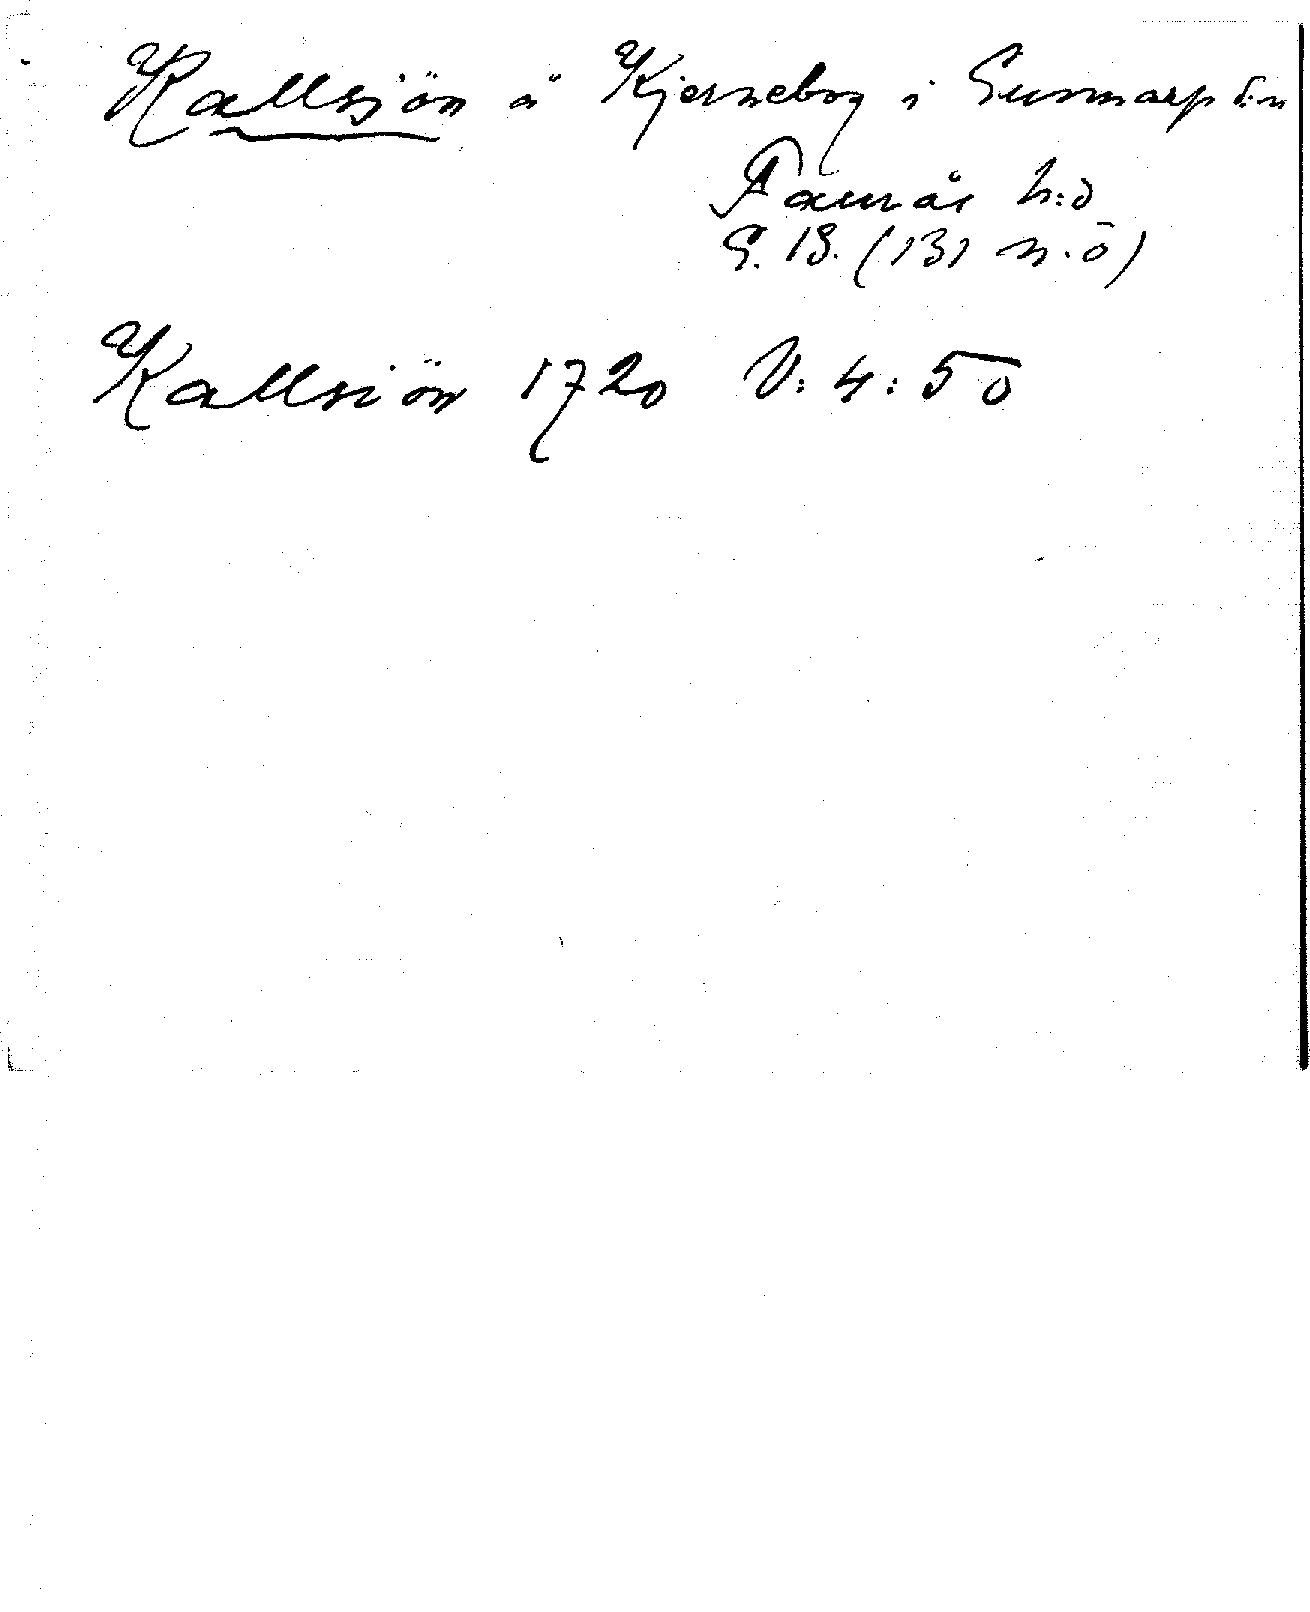 Kallsjön å Kjernebog i Gunnarp s:n
Faurås h:d
G. B. (131 n.ö)
Kallsiön 1720 V: 4: 50